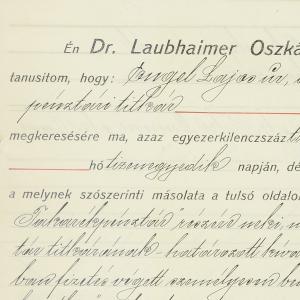 Én Dr. Laubhaimer Oszká
tanusitom, hogy: Engel Lajos úr,
pénztári titkár
megkeresésére ma, azaz egyezerkilenczszáz
hó tizenegyedik napján, dé
a melynek szószerinti másolata a tulsó oldalon
Takarékpénztár részéről neki,
tár titkárának - határozott kíván
ban fizetés végett személyesen be